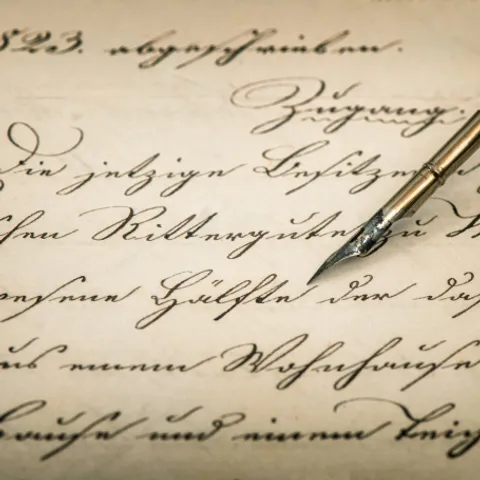 523. abgeschrieben.
Zugang.
Die jetzige Besitzer
schen Rittergute zu
wesene Hälfte der das
aus einem Wohnhause
hause und einem Teich